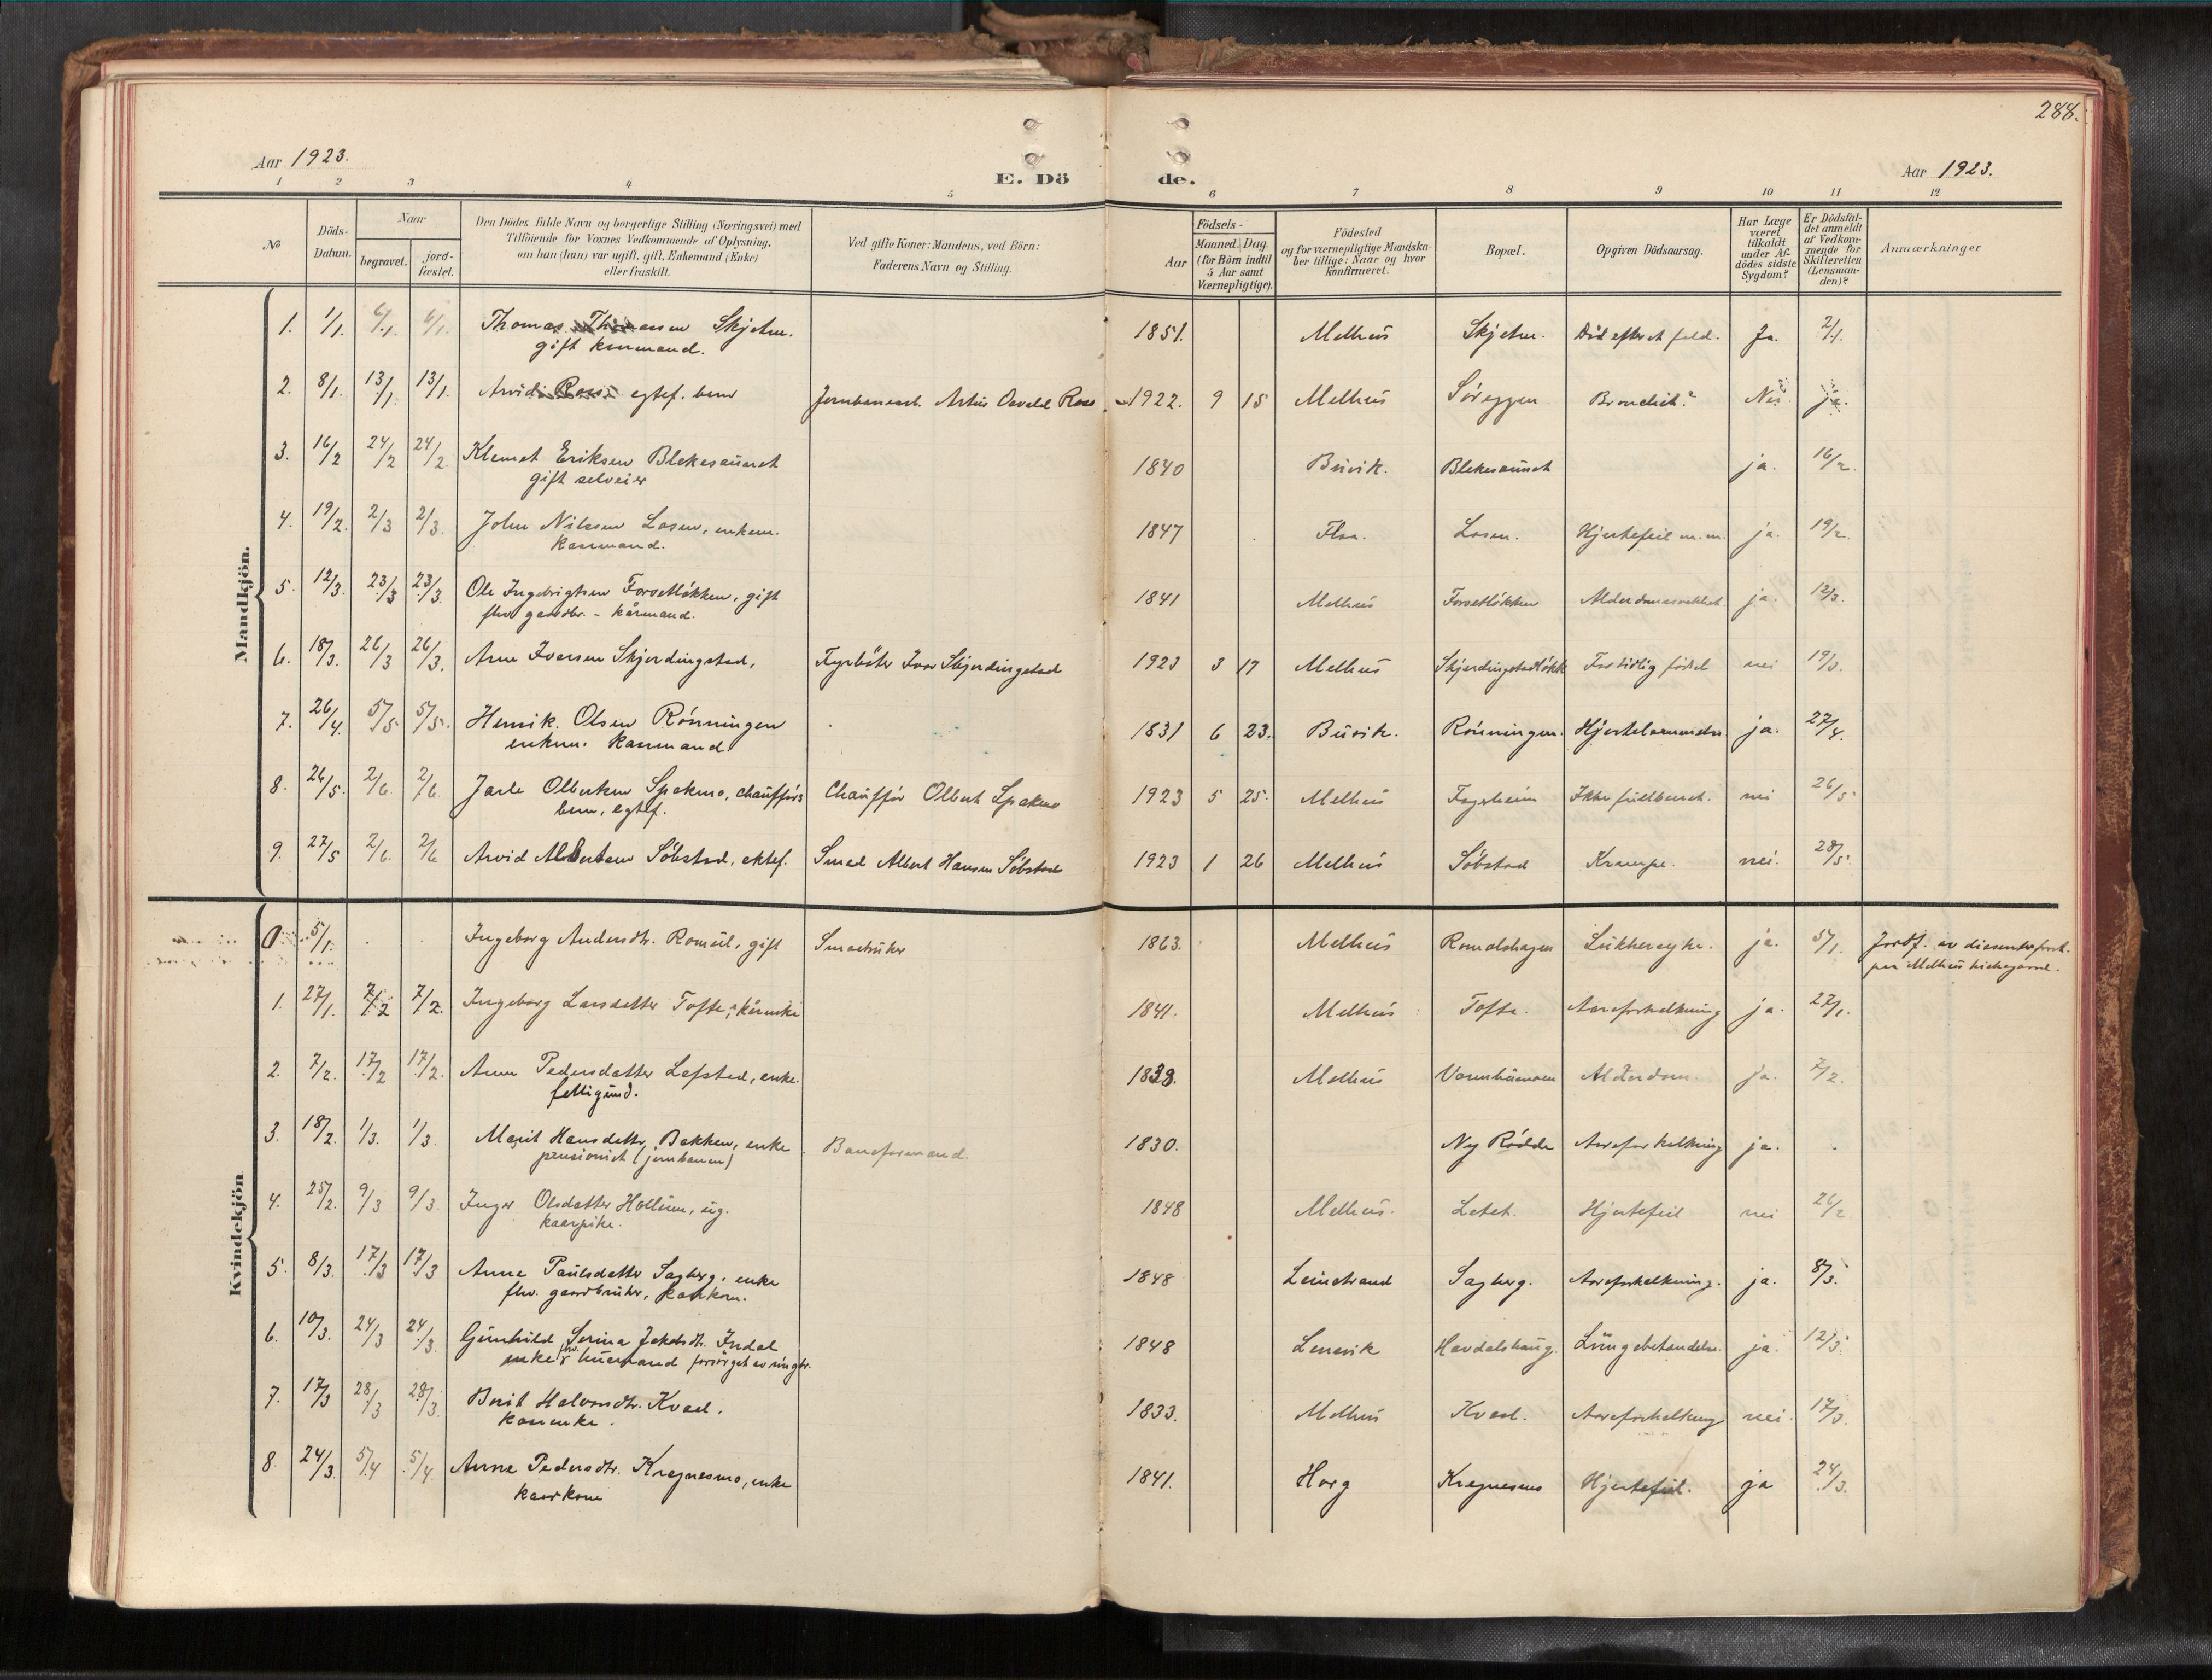 288.
Aar 1923.
E. Döde.
Aar 1923.
1 2 3 4 5 6 7 8 9 10 11 12
No
Döds-Datum.
Naar
begravet.
jord-fæstet.
Den Dödes fulde Navn og borgerlige Stilling (Næringsvei) med
Tilföiende for Voxnes Vedkommende af Oplysning,
om han (hun) var ugift, gift, Enkemand (Enke)
eller fraskilt.
Ved gifte Koner: Mandens, ved Börn:
Faderens Navn og Stilling.
Födsels-
Aar
Maaned. Dag.
(for Börn indtil
5 Aar samt
Værnepligtige).
Födested
og for værnepligtige Mandska-
ber tillige: Naar og hvor
konfirmeret.
Bopæl.
Opgiven Dödsaarsag.
Har Læge
været
tilkaldt
under Af-
dödes sidste
Sygdom?
Er Dödsfal-
det anmeldt
af Vedkom-
mende for
Skifteretten
(Lensman-
den)?
Anmærkninger
Mandkjön.
1. 1/1. 6/1. 6/1. Thomas Thomassen Skjetne. 1851. Melhus Skjetne. Død efter et fald. Ja. 2/1.
gift kaarmand.
2. 8/1. 13/1. 13/1. Arvid Ross egtef. barn Jernbanearb. Artur Osvald Ross 1922. 9 15 Melhus Søreggen Bronchit? Nei. ja.
3. 16/2 24/2 24/2. Klemet Eriksen Blekesaunet 1840 Buvik. Blekesaunet ja. 16/2.
gift selveier
4. 19/2. 2/3 2/3. John Nilssen Losen, enkem. 1847 Flaa. Losen. Hjertefeil m.m. ja. 19/2.
kaarmand.
5. 12/3. 23/3 23/3. Ole Ingebrigtsen Forsetløkken, gift 1841 Melhus Forsetløkken Alderdomssvakhet ja. 12/3.
fhv gaardbr. - kårmand.
6. 18/3. 26/3 26/3. Arne Iversen Skjerdingstad, Fyrbøter Ivar Skjerdingstad 1923 3 17 Melhus Skjerdingstadløkk For tidlig født nei 19/3.
7. 26/4. 5/5 5/5. Henrik Olsen Rønningen 1831 6 23. Buvik. Rønningen. Hjertelammelse ja. 27/4.
enkem. kaarmand
8. 26/5. 2/6. 2/6 Jarle Olbertsen Spakmo, chaufførs Chauffør Olbert Spakmo 1923 5 25. Melhus Fagerheim Ikke fuldbaaret. nei 26/5
barn, egtef.
9. 27/5 2/6. 2/6 Arvid Albertsen Søbstad, ektef. Smed Albert Hansen Søbstad 1923 1 26 Melhus Søbstad Krampe. nei. 28/5.
Kvindekjön
0. 5/1. Ingeborg Andersdtr. Romul, gift Smaabruker 1863. Melhus Romolshagen Sukkersyke. ja. 5/1. Jordf. av dissenterforst.
paa Melhus kirkegaard.
1. 27/1. 7/2 7/2. Ingeborg Larsdatter Tofte, kårenke 1841. Melhus Tofte. Aareforkalkning ja. 27/1.
2. 7/2. 17/2 17/2. Anne Pedersdatter Lefstad, enke 1838. Melhus Varmbumoen Alderdom. ja. 7/2.
fattigund.
3. 18/2. 1/3. 1/3 Marit Hansdatter Bakken, enke Baneformand. 1830. Ny Rødde Aareforkalkning ja.
pensionist (jernbanen)
4. 25/2. 9/3 9/3. Inger Olsdatter Hollum, ug. 1848 Melhus. Letet. Hjertefeil nei 26/2
kaarpike.
5. 8/3. 17/3 17/3 Anne Paulsdatter Sagberg, enke 1848 Leinstrand Sagberg. Aareforkalkning. ja. 8/3.
fhv. gaardbruker, kaarkone.
6. 10/3. 24/3 24/3. Gunhild Serina Jakobsdtr. Indal 1848 Lensvik Havdalshaug. Lungebetændelse. ja. 12/3
enke e. fhv. husmand forsørget av
7. 17/3 28/3 28/3. Berit Halvorsdtr. Kval. 1833. Melhus Kval. Aareforkalkning nei 17/3.
kaarenke.
8. 24/3. 5/4 5/4. Anne Pedersdtr. Kregnesmo, enke 1841. Horg Kregnesmo Hjertefeil. ja 24/3.
kaarkone